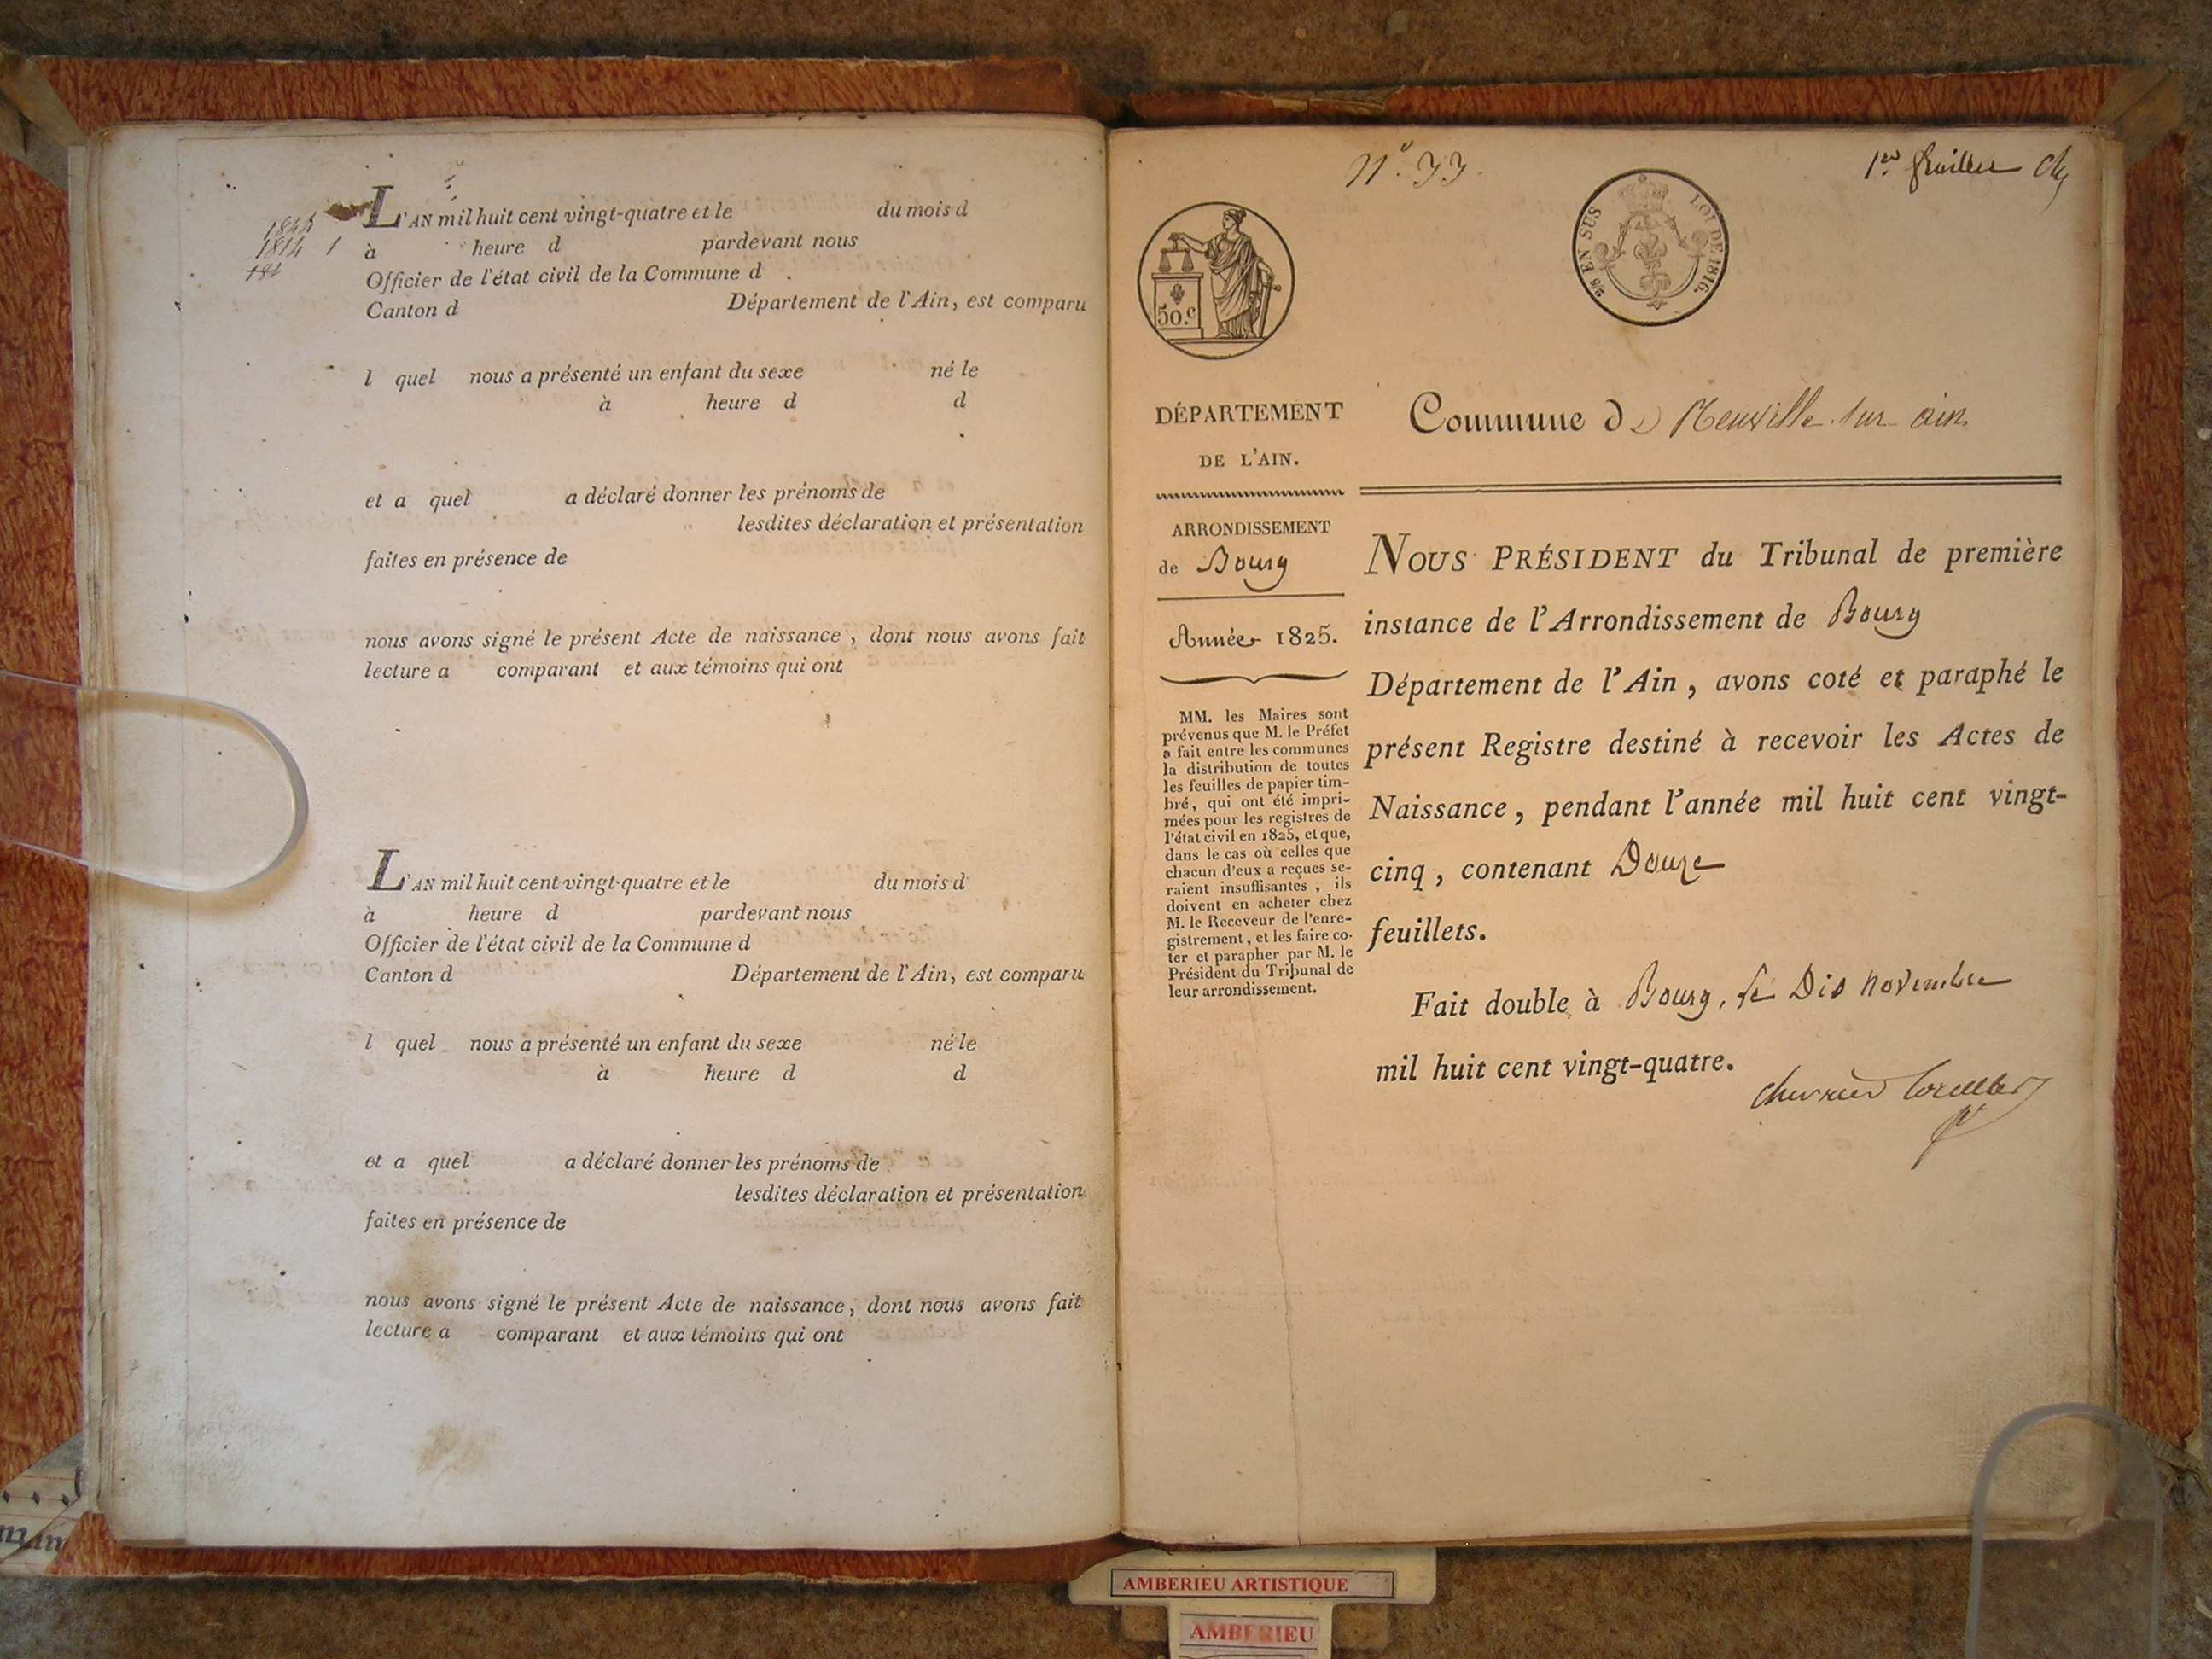 1844
1814 1
181
L'AN mil huit cent vingt-quatre et le du mois d
à heure d pardevant nous
Officier de l'état civil de la Commune d
Canton d Département de l'Ain, est comparu
l quel nous a présenté un enfant du sexe né le
à heure d d
et a quel a déclaré donner les prénoms de
lesdites déclaration et présentation
faites en présence de
nous avons signé le présent Acte de naissance, dont nous avons fait
lecture a comparant et aux témoins qui ont
L'AN mil huit cent vingt-quatre et le du mois d
à heure d pardevant nous
Officier de l'état civil de la Commune d
Canton d Département de l'Ain, est comparu
l quel nous a présenté un enfant du sexe né le
à heure d d
et a quel a déclaré donner les prénoms de
lesdites déclaration et présentation
faites en présence de
nous avons signé le présent Acte de naissance, dont nous avons fait
lecture a comparant et aux témoins qui ont
N.º 33
1er feuillet
50.c
EN SUS LOI DE 1816.
DÉPARTEMENT
DE L'AIN.
ARRONDISSEMENT
de Bourg
Année 1825.
MM. les Maires sont
prévenus que M. le Préfet
a fait entre les communes
la distribution de toutes
les feuilles de papier tim-
bré, qui ont été impri-
mées pour les registres de
l'état civil en 1825, et que,
dans le cas où celles que
chacun d'eux a reçues se-
raient insuffisantes, ils
doivent en acheter chez
M. le Receveur de l'enre-
gistrement, et les faire co-
ter et parapher par M. le
Président du Tribunal de
leur arrondissement.
Commune de Neuville sur ain
NOUS PRÉSIDENT du Tribunal de première
instance de l'Arrondissement de Bourg
Département de l'Ain, avons coté et paraphé le
présent Registre destiné à recevoir les Actes de
Naissance, pendant l'année mil huit cent vingt-
cinq, contenant Douze
feuillets.
Fait double à Bourg, le Dix novembre
mil huit cent vingt-quatre.
AMBERIEU ARTISTIQUE
AMBERIEU